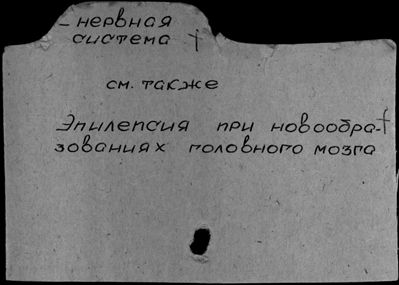 – нервная
система †
см. также
Эпилепсия при новообра- †
зованиях головного мозга